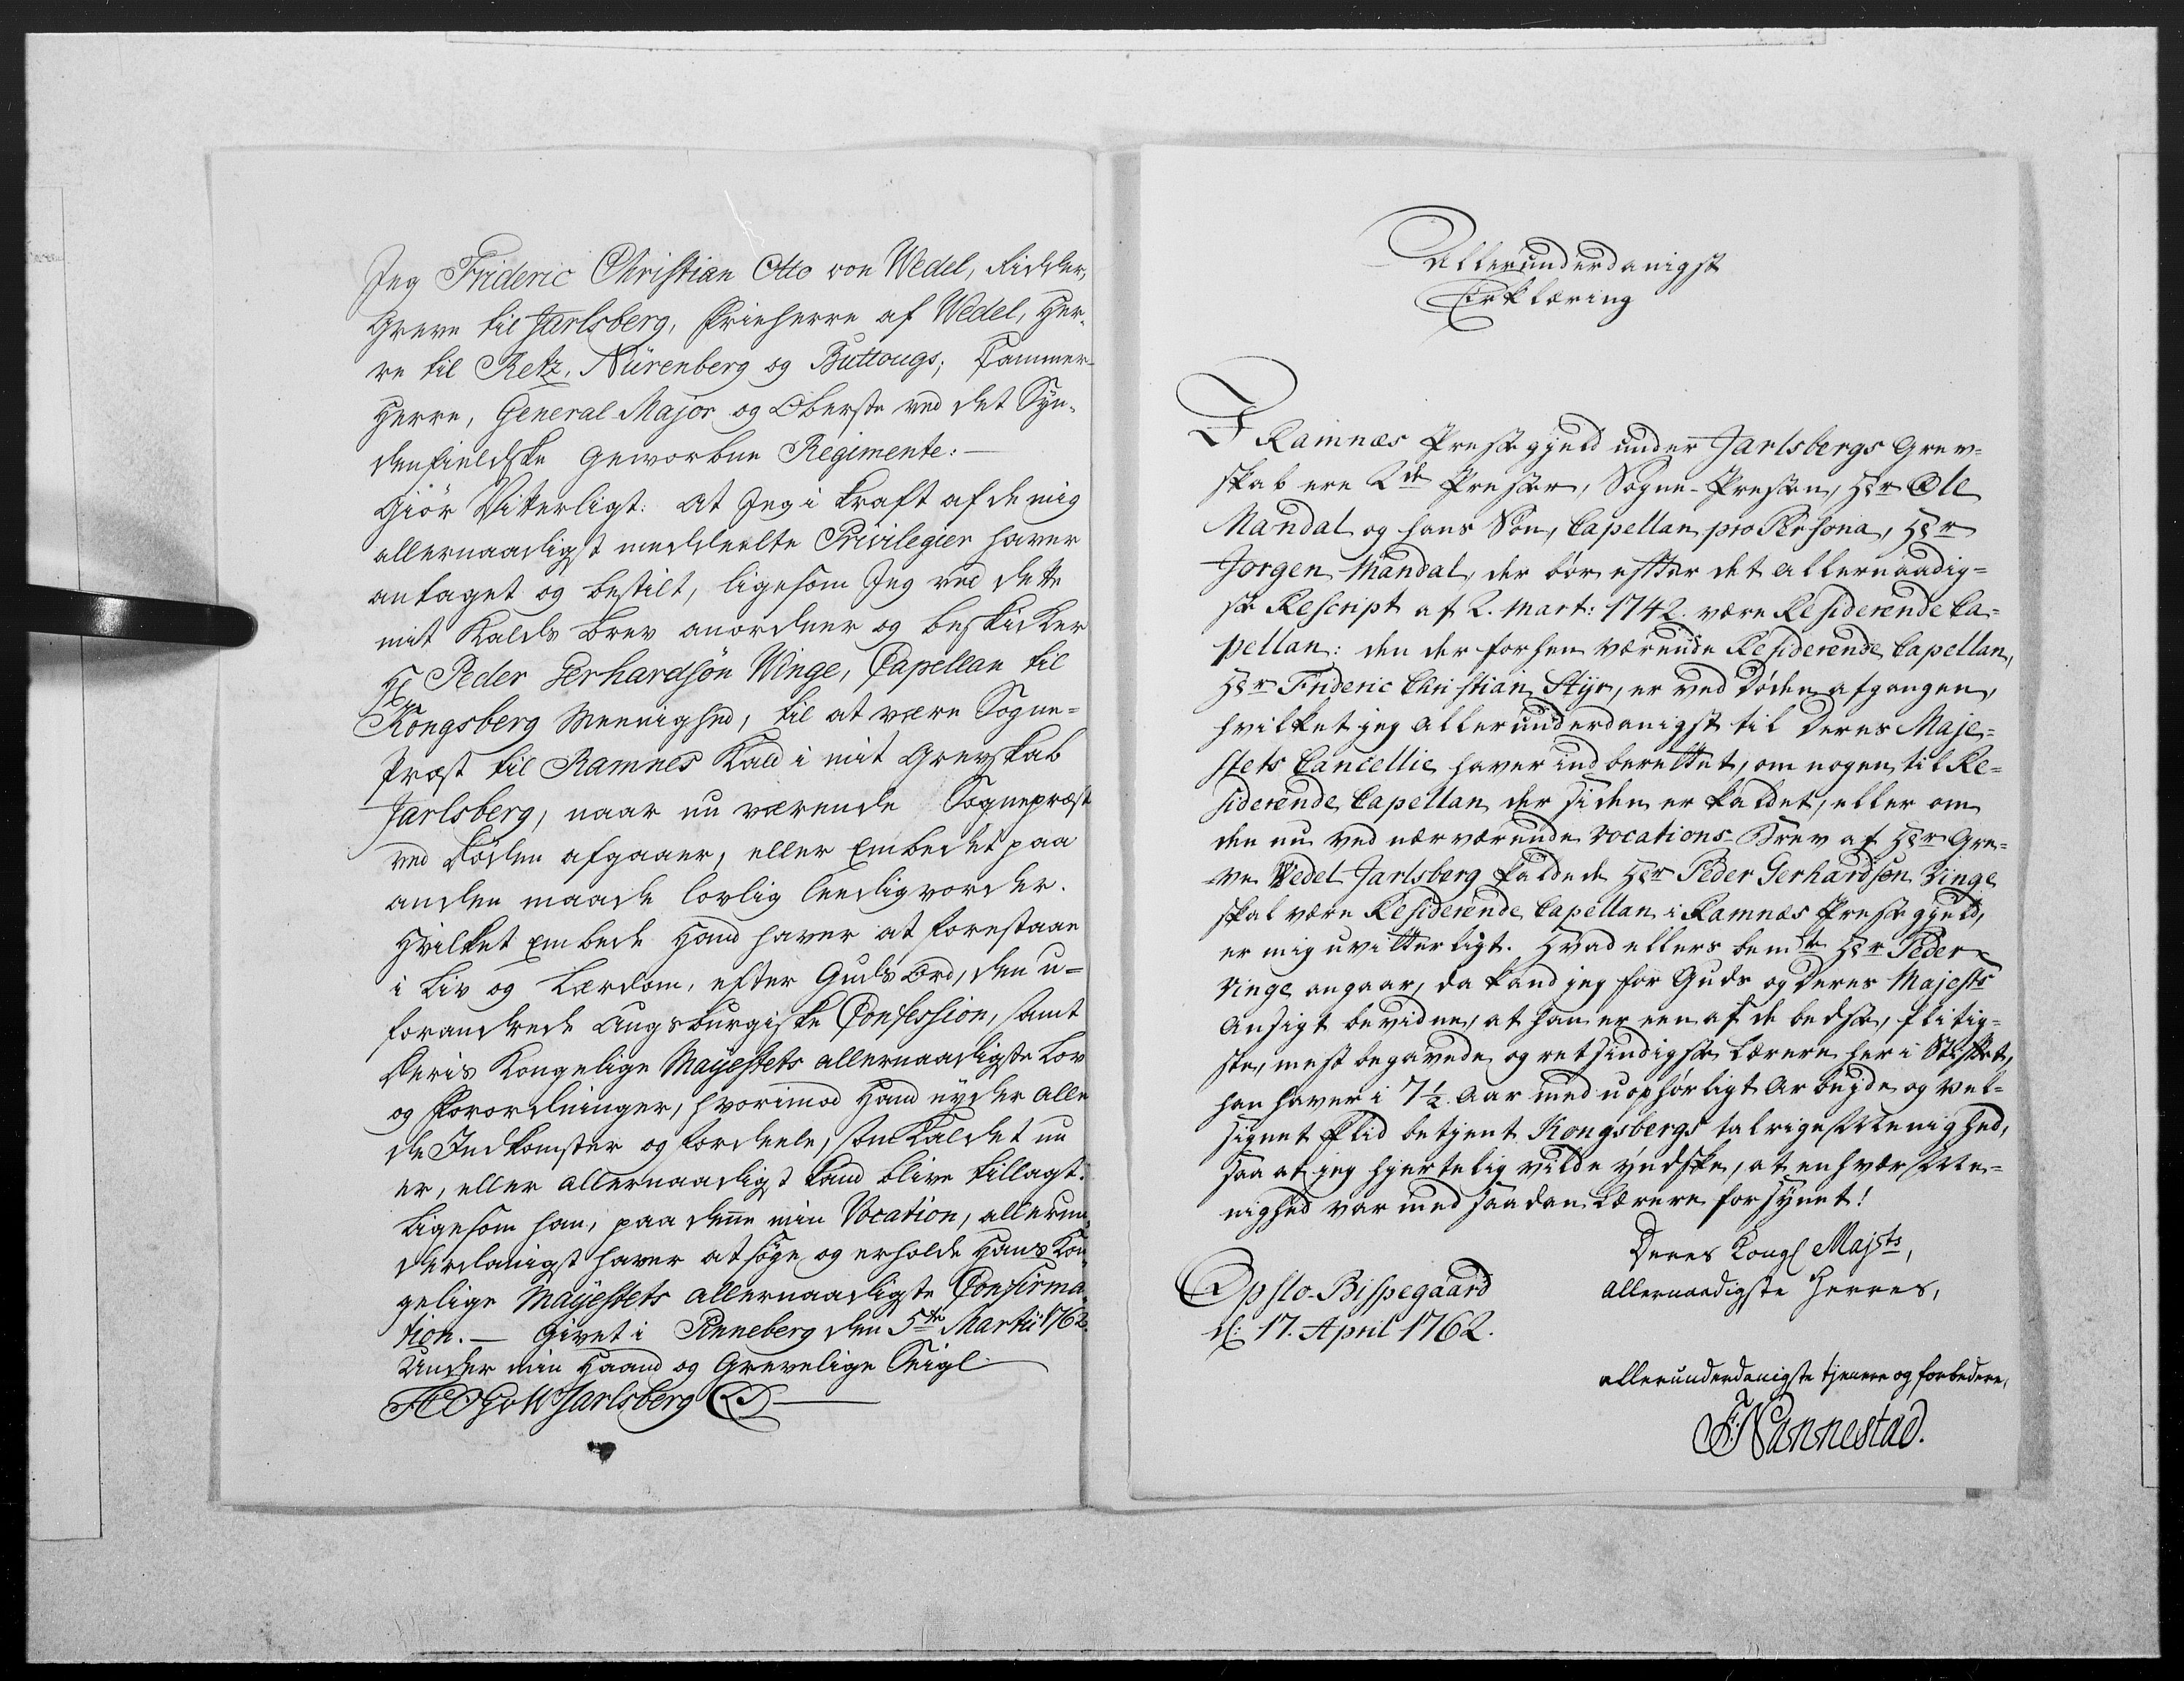 Jeg Frideric Christian Otto von Wedel, Ridder,
Greve til Jarlsberg, Friherre af Wedel, Her-
re til Retz, Nürenberg og Buttougs; Cammer-
Herre, General Major og Oberste ved det Syn-
denfieldske Geworbne Regimente:
Giör Vitterligt: At Jeg i Kraft af de mig
allernaadigst meddeelte Privilegier haver
antaget og bestilt, ligesom Jeg ved dette
mit Kalds Brev anordner og beskicker
Hr Peder Gerhardsön Winge, Capellan til
Kongsberg Meenighed, til at være Sogne-
Præst til Ramnes Kald i mit Grevskab
Jarlsberg, naar nu værende Sognepræst
ved Döden afgaaer, eller Embedet paa
anden maade lovlig leedig vorder.
Hvilket Embede Hand haver at forestaae
i Liv og Lærdom, efter Guds Ord, den u-
forandrede Augsburgiske Confession, samt
Deris Kongelige Mayestets allernaadigste Lov
og Forordninger, hvorimod Hand nyder alle
de Indkomster og Fordeele, som Kaldet nu
er, eller allernaadigst kand blive tillagt.
Ligesom han, paa denne min Vocation, allerun-
derdanigst haver at söge og erholde Hans Kon-
gelige Mayestets allernaadigste Confirma-
tion. — Givet i Pinneberg den 5te Martii 1762.
Under min Haand og Grevelige Seigl
FCOGvW Jarlsberg
Allerunderdanigst
Erklæring
I Ramnæs Præstegjeld under Jarlsbergs Grev-
skab ere 2de Præster, Sogne-Præsten, Hr Ole
Mandal og hans Sön, Capellan pro Persona, Hr
Jorgen Mandal, der bör efter det allernaadig-
ste Rescript af 2. Mart: 1742 være Residerende Ca-
pellan: den der forhen værende Residerende Capellan,
Hr Frideric Christian Styr, er ved Döden afgangen,
hvilket jeg allerunderdanigst til Deres Maje-
stets Cancellie haver indberettet, om nogen til Re-
siderende Capellan der siden er kaldet, eller om
den nu ved nærværende Vocations-Brev af Hr Gre-
ve Wedel Jarlsberg kaldede Hr Peder Gerhardsen Vinge
skal være Residerende Capellan i Ramnæs Præstegjeld,
er mig uvitterligt. Hvad ellers bemte Hr Peder
Vinge angaar, da kand jeg for Guds og Deres Majests
Ansigt bevidne, at han er een af de bedste, flitig-
ste, mest begavede og retsindigste Lærere her i Stiftet,
han haver i 7½ Aar med uophörligt Arbeyde og vel-
signet Flid betjent Kongsbergs talrige Menighed,
saa at jeg hjertelig vilde yndske, at enhver Me-
nighed var med saadan Lærere forsynet!
Deres Kongl Majsts,
Allernaadigste Herres,
Opslo-Bispegaard
d: 17. April 1762.
allerunderdanigste tjenere og forbedere,
F. Nannestad.